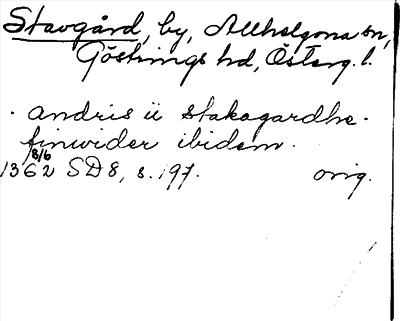 Stavgård, by, Allhelgona sn,
Göstrings hd, Österg. l.
· andris ii stakagardhe ·
finwider ibidem ·
18/6
1362 SD 8, s. 197. orig.